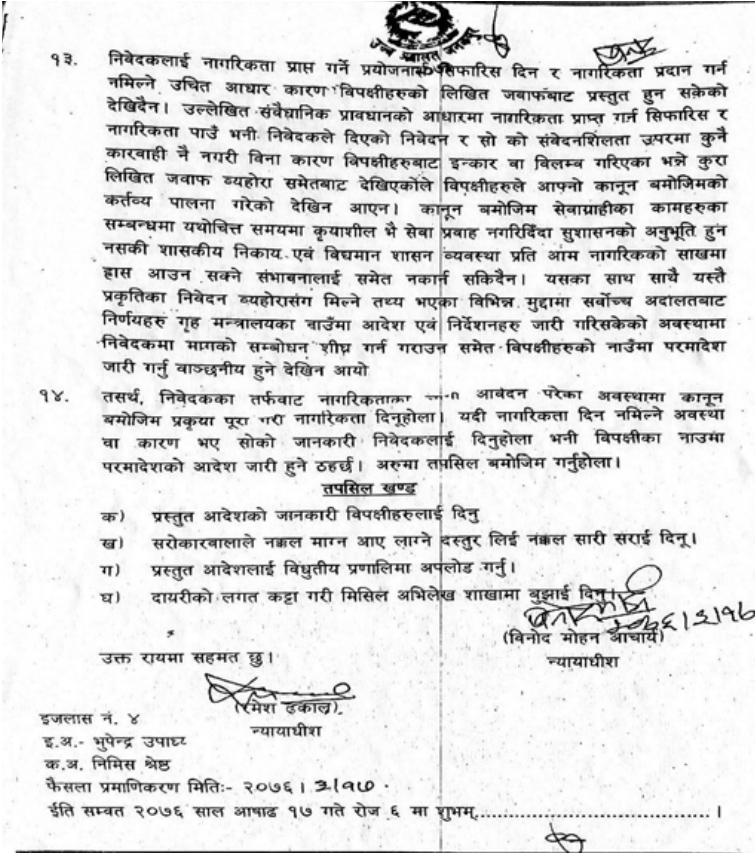 उच्च अदालत जनकपुर
१३. निवेदकलाई नागरिकता प्राप्त गर्ने प्रयोजनार्थ सिफारिस दिन र नागरिकता प्रदान गर्न
नमिल्ने उचित आधार कारण विपक्षीहरुको लिखित जवाफबाट प्रस्तुत हुन सकेको
देखिदैन। उल्लेखित संवैधानिक प्रावधानको आधारमा नागरिकता प्राप्त गर्न सिफारिस र
नागरिकता पाउँ भनी निवेदकले दिएको निवेदन र सो को संवेदनशिलता उपरमा कुनै
कारवाही नै नगरी विना कारण विपक्षीहरुबाट इन्कार वा विलम्ब गरिएका भन्ने कुरा
लिखित जवाफ व्यहोरा समेतबाट देखिएकोले विपक्षीहरुले आफ्नो कानून बमोजिमको
कर्तव्य पालना गरेको देखिन आएन। कानून बमोजिम सेवाग्राहीका कामहरुका
सम्बन्धमा यथोचित्त समयमा कृयाशील भै सेवा प्रवाह नगरिदिंदा सुशासनको अनुभूति हुन
नसकी शासकीय निकाय एवं विद्यमान शासन व्यवस्था प्रति आम नागरिकको साखमा
ह्रास आउन सक्ने संभावनालाई समेत नकार्न सकिदैन। यसका साथ साथै यस्तै
प्रकृतिका निवेदन व्यहोरासंग मिल्ने तथ्य भएका विभिन्न मुद्दामा सर्वोच्च अदालतबाट
निर्णयहरु गृह मन्त्रालयका नाउँमा आदेश एवं निर्देशनहरु जारी गरिसकेको अवस्थामा
निवेदकमा मागको सम्बोधन शीघ्र गर्न गराउन समेत विपक्षीहरुको नाउँमा परमादेश
जारी गर्नु वाञ्छनीय हुने देखिन आयो
१४. तसर्थ, निवेदकका तर्फबाट नागरिकताका आवेदन परेका अवस्थामा कानून
बमोजिम प्रकृया पूरा गरी नागरिकता दिनूहोला। यदी नागरिकता दिन नमिल्ने अवस्था
वा कारण भए सोको जानकारी निवेदकलाई दिनुहोला भनी विपक्षीका नाउमा
परमादेशको आदेश जारी हुने ठहर्छ। अरुमा तपसिल बमोजिम गर्नुहोला।
तपसिल खण्ड
क) प्रस्तुत आदेशको जानकारी विपक्षीहरुलाई दिनु
ख) सरोकारवालाले नक्कल माग्न आए लाग्ने दस्तुर लिई नक्कल सारी सराई दिनू।
ग) प्रस्तुत आदेशलाई विधुतीय प्रणालिमा अपलोड गर्नु।
घ) दायरीको लगत कट्टा गरी मिसिल अभिलेख शाखामा बुझाई दिनु।
२०७६/३/१७
(विनोद मोहन आचार्य)
न्यायाधीश
उक्त रायमा सहमत छु।
(रमेश ढकाल)
न्यायाधीश
इजलास नं. ४
इ.अ.- भुपेन्द्र उपाध्य
क.अ. निमिस श्रेष्ठ
फैसला प्रमाणिकरण मितिः- २०७६। ३/१७
ईति सम्वत २०७६ साल आषाढ १७ गते रोज ६ मा शुभम्...................................।